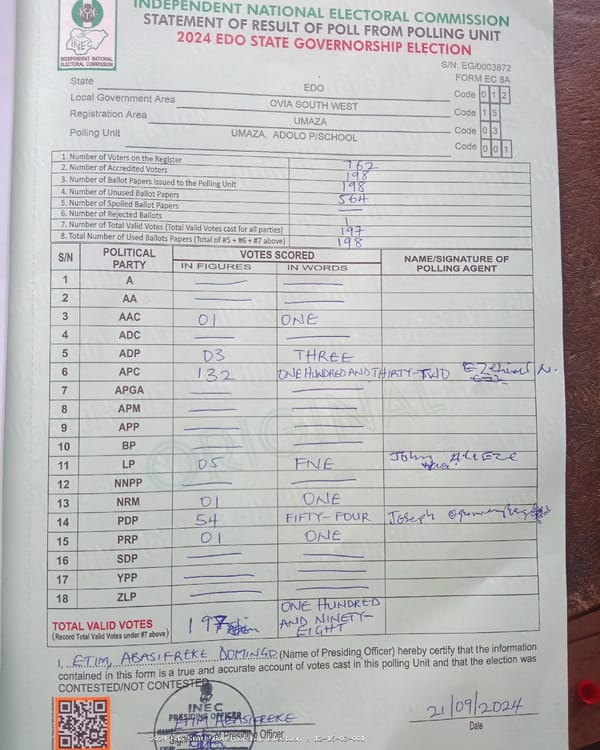 INDEPENDENT NATIONAL ELECTORAL COMMISSION
STATEMENT OF RESULT OF POLL FROM POLLING UNIT
2024 EDO STATE GOVERNORSHIP ELECTION
INEC
INDEPENDENT NATIONAL
ELECTORAL COMMISSION
S/N: EG/0003872
FORM EC 8A
State EDO Code 012
Local Government Area OVIA SOUTH WEST Code 15
Registration Area UMAZA Code 03
Polling Unit UMAZA, ADOLO P/SCHOOL Code 001
1. Number of Voters on the Register 762
2. Number of Accredited Voters 198
3. Number of Ballot Papers Issued to the Polling Unit 198
4. Number of Unused Ballot Papers 564
5. Number of Spoiled Ballot Papers —
6. Number of Rejected Ballots 1
7. Number of Total Valid Votes (Total Valid Votes cast for all parties) 197
8. Total Number of Used Ballots Papers (Total of #5 + #6 + #7 above) 198
S/N POLITICAL PARTY VOTES SCORED NAME/SIGNATURE OF POLLING AGENT
IN FIGURES IN WORDS
1 A — —
2 AA — —
3 AAC 01 ONE
4 ADC — —
5 ADP 03 THREE
6 APC 132 ONE HUNDRED AND THIRTY-TWO
7 APGA — —
8 APM — —
9 APP — —
10 BP — —
11 LP 05 FIVE John
12 NNPP — —
13 NRM 01 ONE
14 PDP 54 FIFTY-FOUR Joseph
15 PRP 01 ONE
16 SDP — —
17 YPP — —
18 ZLP — —
ORIGINAL
TOTAL VALID VOTES 197 ONE HUNDRED AND NINETY-EIGHT
(Record Total Valid Votes under #7 above)
I, ETIM, ABASIFREKE DOMINGO (Name of Presiding Officer) hereby certify that the information
contained in this form is a true and accurate account of votes cast in this polling Unit and that the election was
CONTESTED/NOT CONTESTED
INEC
PRESIDING OFFICER
ETIM ABASIFREKE
21/09/2024
Date